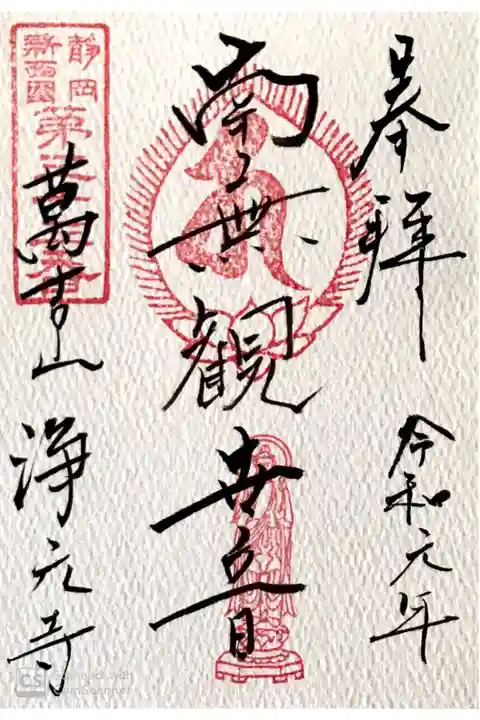 奉拝
令和元年
南無観
世音
萬吉山
浄元寺
静岡
新西国
第
番
CS Scanned with
CamScanner